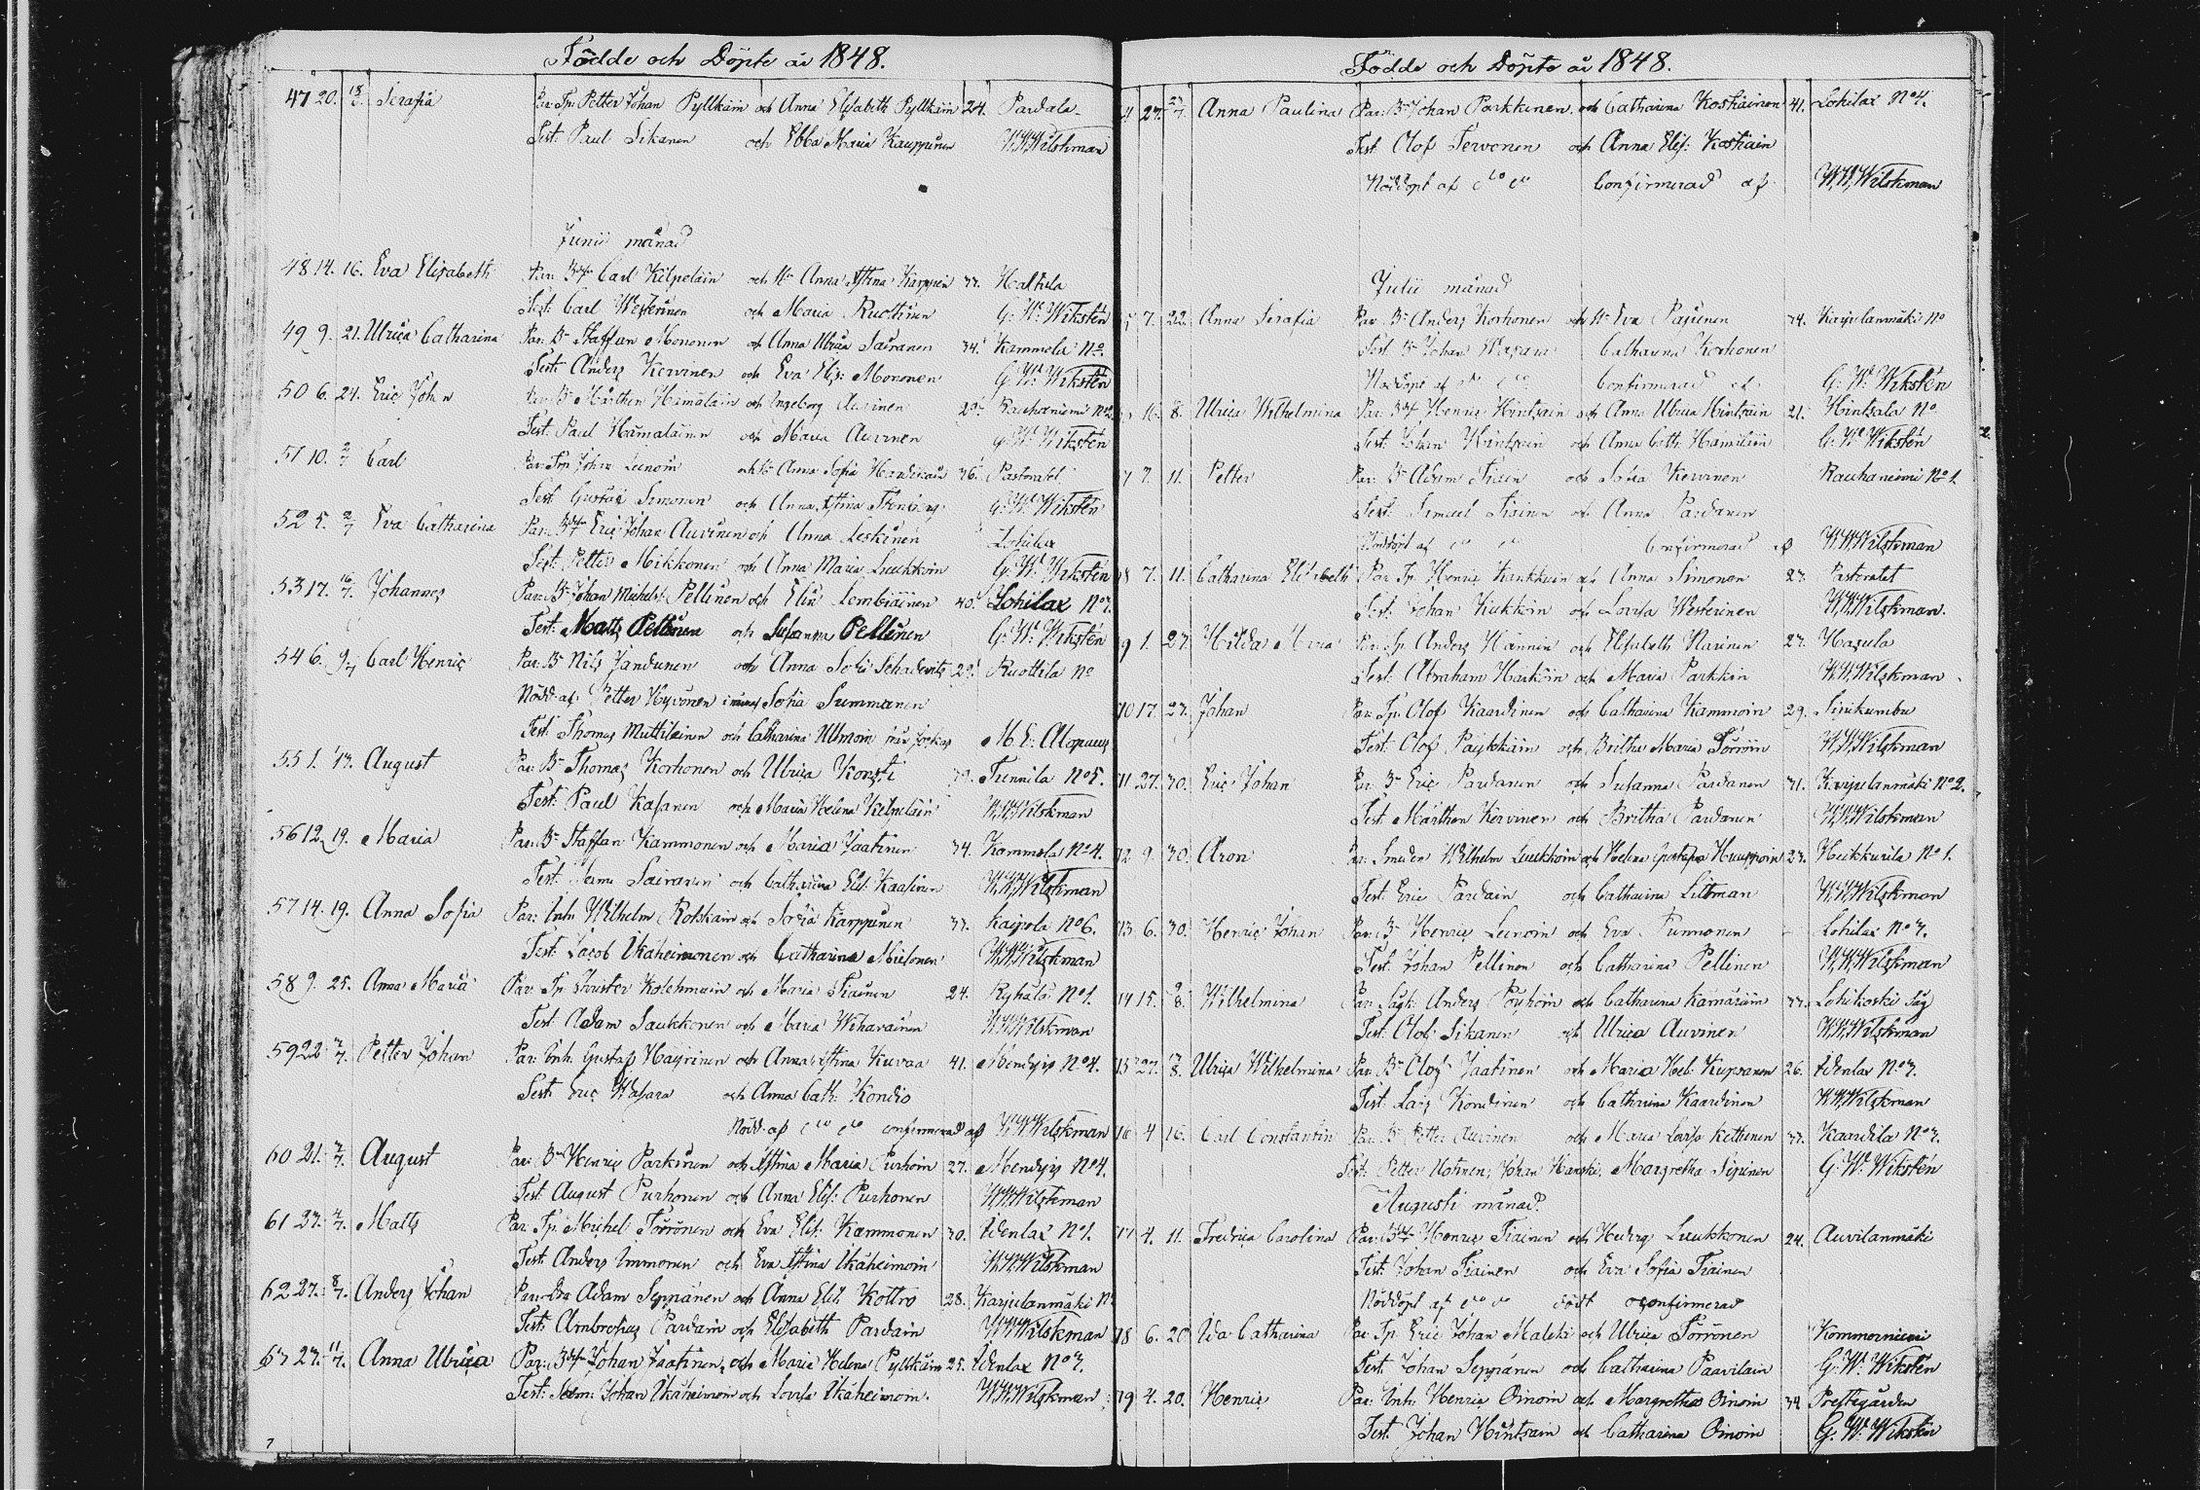 Födde och Döpte år 1848.
47 20. 18/6. Serafia Par: Tp. Petter Johan Pyllkäin och Anna Elisabeth Pyllkäin 24. Pardala
Test. Paul Sikanen och Ebba Maria Kauppinen W.W.Wilskman
Junii månad
48 14. 16. Eva Elisabeth Par: Carl Kilpeläin och Anna Stina Karppin 33. Haltula
Test: Carl Westerinen och Maria Ruottinen G. W. Wikstén
49 9. 21. Ulrica Catharina Par. Bd Staffan Mononen och Anna Ulrica Sairanen 34. Kammola No.
Test: Anders Kervinen och Eva Elis: Mononen G. W. Wikstén
50 6. 24. Eric Johan Par. Bd Mårthen Hämäläin och Ingeborg Auvinen Rauhaniemi No 2
Test. Paul Hämäläinen och Maria Auvinen G. W. Wikstén
51 10. 2/7 Carl Par: Johan Leinoin och Anna Sofia 36. Pastoratet
Test Gustav Simonen och Anna Stina G. W. Wikstén
52 5. 2/7 Eva Catharina Par: Eric Johan Auvinen och Anna Leskinen Lohilax
Test. Petter Mikkonen och Anna Maria Luukkoin G. W. Wikstén
53 17. 16/7. Johannes Par: Bd Johan Michels: Pellinen och Elin Lembiäinen 40. Lohilax No 3.
Test: Matts Pellinen och Susanna Pellinen G. W. Wikstén
54 6. 9/7 Carl Henric Par. Bd Nils Jandunen och Anna Sofia Schadevitz 29. Ruottila No
Nödd. af Petter Hyvönen Sofia Summanen
Test: Thomas Muttilainen och Catharina Ullmoin M. E. Alopaeus
55 1. 13. August Par: Bd Thomas Korhonen och Ulrica Konsti Tunnila No 5.
Test. Paul Kasanen och Maria Helena Kilpiläin W.W.Wilskman
56 12. 19. Maria Par: Bd Staffan Kammonen och Maria Jaatinen 34. Kammola No 4.
Test. Sairanen och Catharina Elis: Kaatinen W.W.Wilskman
57 14. 19. Anna Sofia Par: Inh: Wilhelm och Sofia Karppinen 33. Kaipola No 6.
Test. Jacob Ikäheimonen och Catharina Mielonen W.W.Wilskman
58 9. 25. Anna Maria Par. Tp. Christer Kolehmain och Maria Tiainen 24. Ryhälä No 1.
Test. Adam Laukkonen och Maria Wihavainen W.W.Wilskman
59 22 2/7. Petter Johan Par: Inh. Gustaf Hayrinen och Anna Stina Kuvaa 41. Mendyis No 4.
Test. Eric Wasara och Anna Cath: Kondio
Nödd. af confirmerad af W.W.Wilskman
60 21. 2/7. August Par. Bd Henric Parkinen och Stina Maria Purhoin 27. Mendyis No 4.
Test. August Purhonen och Anna Elis: Purhonen W.W.Wilskman
61 27. 4/7. Matts Par. Tp. Michel Törrönen och Eva Elis: Kammonen 30. Idenlax No 1.
Test: Anders Immonen och Eva Stina Ikäheimoin W.W.Wilskman
62 27. 8/7. Anders Johan Par: Adam Seppänen och Anna Elis. Kottro 28. Karjulanmäki No
Test. Ambrosius Pardain och Elisabeth Pardain W.W.Wilskman
63 27. 11/7. Anna Ulrica Par: Johan Jaatinen, och Maria Helena Pyllkäin 25. Idenlax No 3.
Test: Johan Ikäheimoin och Lovisa Ikäheimoin. W.W.Wilskman
Födde och Döpte år 1848.
27. 27/7. Anna Paulina Par. Bd Johan Parkkinen och Catharina Koskiainen 41. Lohilax No 4.
Test. Olof Tervonen och Anna Elis: Koskiain
Nöddöpt af Confirmerad af W.W.Wilskman
Julii månad
7. 22. Anna Serafia Par. Bd Anders Korhonen och Eva Pasunen 34. Karjulanmäki No
Test. Bd Johan Wasara Catharina Korhonen
Nöddöpt af Confirmerad af G. W. Wikstén
16. 8. Ulrica Wilhelmina Par. Henric Hintsain och Anna Ulrica Hintsain 21. Hintsala No
Test. Johan Hintsain och Anna Cath. Hämäläin G. W. Wikstén
7. 11. Petter Par. Bd Adam Tiain och Sofia Kervinen Rauhaniemi No 1.
Test. Samuel Tiainen och Anna Pardanen
Nöddöpt af Confirmerad af W.W.Wilskman
7. 11. Catharina Elisabeth Par. Tp. Henric Kaukkuin och Anna Simonen 27. Pastoratet
Test. Johan Kukkoin och Lovisa Westerinen W.W.Wilskman.
1. 27. Hilda Maria Par. Tp. Anders Hännen och Elisabeth Narinen 27. Hasula
Test. Abraham Harkoin och Maria Parkkin W.W.Wilskman
70 17. 27. Johan Par. Tp. Olof Kaardinen och Catharina Kammoin 29. Sirikumbu
Test. Olof Paykkäin och Britha Maria Törröin W.W.Wilskman
71 27. 30. Eric Johan Par. Bd Eric Pardanen och Susanna Pardanen 31. Karjulanmäki No 2.
Test. Mårthen Kervinen och Britha Pardanen W.W.Wilskman
72 9. 30. Aron Par. Smeden Wilhelm Luukkoin och Helena Gustava Huuppoin 27. Heikkurila No 1.
Test. Eric Pardain och Catharina Littman W.W.Wilskman
73 6. 30. Henric Johan Par. Bd Henric Leinoin och Eva Punnonen Lohilax No 3.
Test. Johan Pellinen och Catharina Pellinen W.W.Wilskman
74 15. 2/8. Wilhelmina Par. Anders Poyhöin och Catharina Kämäräin 33. Lohikoski Såg
Test. Olof Sikanen och Ulrica Auvinen W.W.Wilskman
75 27. 13/8. Ulrica Wilhelmina Par. Bd Olof Jaatinen och Maria Hel. Kupranen 26. Idenlax No 3.
Test. Lars Kondinen och Catharina Kaardinen W.W.Wilskman
76 4 16. Carl Constantin Par. Bd Petter Auvinen och Maria Lovisa Kettunen 33. Kaardila No 3.
Test. Petter Hotinen, Johan Hanski, Margretha Sipinen G. W. Wikstén
Augusti månad.
77 4. 11. Fredrica Carolina Par. Henric Tiainen och Hedvig Luukkonen 24. Auvilanmäki
Test. Johan Tiainen och Eva Sofia Tiainen
Nöddöpt af dödt oconfirmerad
78 6. 20 Ida Catharina Par. Tp. Eric Johan Malski och Ulrica Törrönen Kommerniemi
Test. Johan Seppänen och Catharina Paavilain G. W. Wikstén
79 4. 20. Henric Par. Inh: Henric Oinoin och Margretha Oinoin 34 Prestgården
Test. Johan Hintsain och Catharina Oinoin G. W. Wikstén